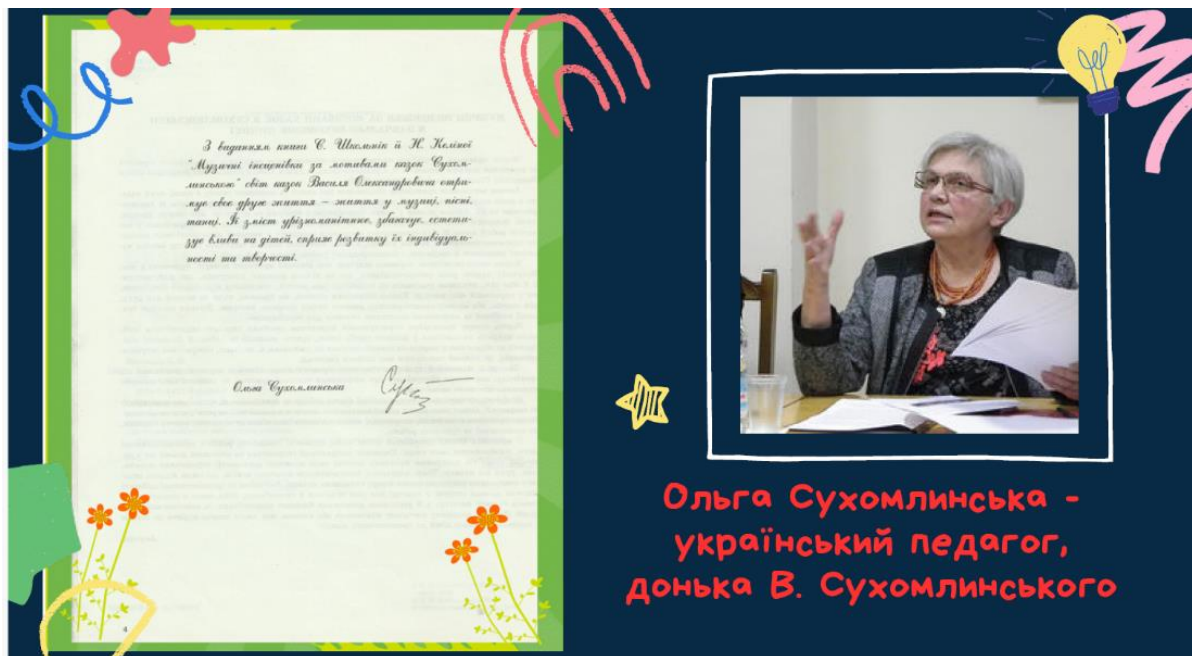 З виданням книги С. Школьнік й Н. Келіної
"Музичні інсценівки за мотивами казок Сухом-
линського" світ казок Василя Олександровича отри-
мує своє друге життя – життя у музиці, пісні,
танці. Їх зміст урізноманітнює, збагачує, естети-
зує вплив на дітей, сприяє розвитку їх індивідуаль-
ності та творчості.
Ольга Сухомлинська
4
Ольга Сухомлинська -
український педагог,
донька В. Сухомлинського